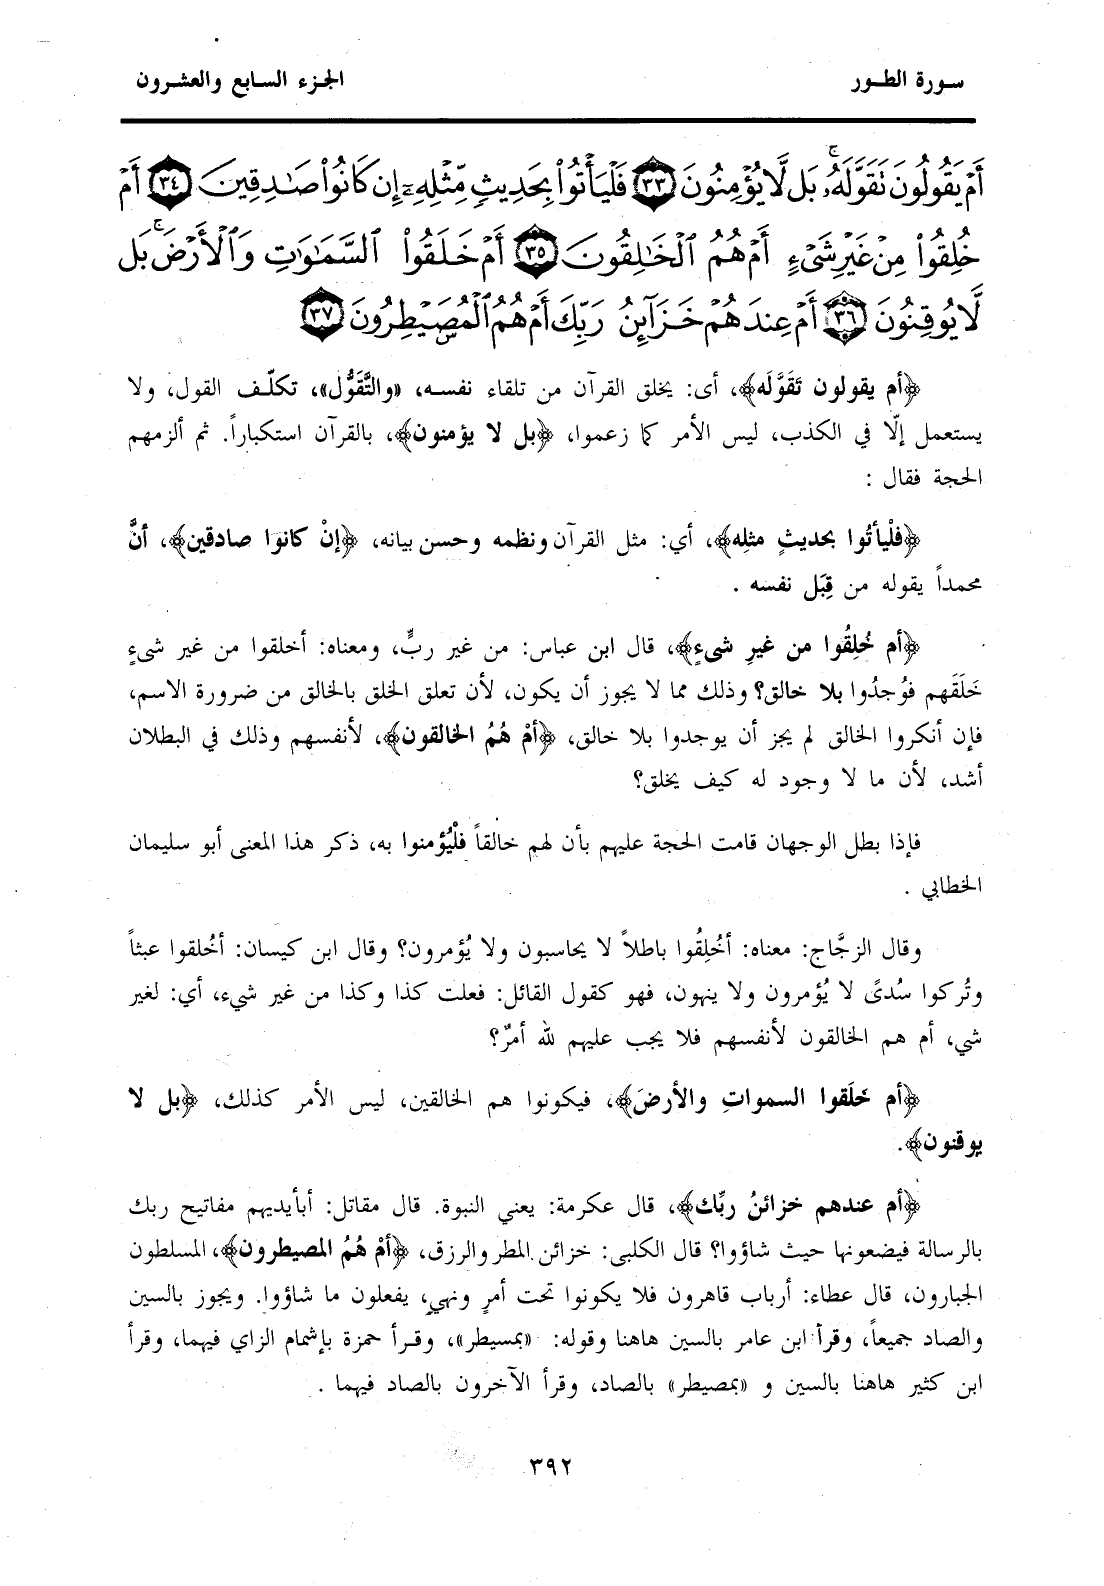 سورة الطور
الجزء السابع والعشرون
أَمْ يَقُولُونَ تَقَوَّلَهُۥ ۚ بَل لَّا يُؤْمِنُونَ ٣٣ فَلْيَأْتُوا۟ بِحَدِيثٍ مِّثْلِهِۦٓ إِن كَانُوا۟ صَـٰدِقِينَ ٣٤ أَمْ
خُلِقُوا۟ مِنْ غَيْرِ شَىْءٍ أَمْ هُمُ ٱلْخَـٰلِقُونَ ٣٥ أَمْ خَلَقُوا۟ ٱلسَّمَـٰوَٰتِ وَٱلْأَرْضَ ۚ بَل
لَّا يُوقِنُونَ ٣٦ أَمْ عِندَهُمْ خَزَآئِنُ رَبِّكَ أَمْ هُمُ ٱلْمُصَۣيْطِرُونَ ٣٧
﴿أم يقولون تَقَوَّلَه﴾، أى: يخلق القرآن من تلقاء نفسه، «والتَّقَوُّل»، تكلّف القول، ولا
يستعمل إلّا في الكذب، ليس الأمر كما زعموا، ﴿بل لا يؤمنون﴾، بالقرآن استكباراً. ثم ألزمهم
الحجة فقال :
﴿فلْيأتُوا بحديثٍ مثلِه﴾، أي: مثل القرآن ونظمه وحسن بيانه، ﴿إنْ كانوا صادقين﴾، أنَّ
محمداً يقوله من قِبَل نفسه .
﴿أم خُلِقُوا من غيرِ شىءٍ﴾، قال ابن عباس: من غير ربٍّ، ومعناه: أخلقوا من غير شىءٍ
خَلَقَهم فوُجدُوا بلا خالق؟ وذلك مما لا يجوز أن يكون، لأن تعلق الخلق بالخالق من ضرورة الاسم،
فإن أنكروا الخالق لم يجز أن يوجدوا بلا خالق، ﴿أمْ هُمُ الخالقون﴾، لأنفسهم وذلك في البطلان
أشد، لأن ما لا وجود له كيف يخلق؟
فإذا بطل الوجهان قامت الحجة عليهم بأن لهم خالقاً فلْيُؤمنوا به، ذكر هذا المعنى أبو سليمان
الخطابي .
وقال الزجَّاج: معناه: أخُلِقُوا باطلاً لا يحاسبون ولا يُؤمرون؟ وقال ابن كيسان: أخُلقوا عبثاً
وتُركوا سُدىً لا يُؤمرون ولا ينهون، فهو كقول القائل: فعلت كذا وكذا من غير شيء، أي: لغير
شي، أم هم الخالقون لأنفسهم فلا يجب عليهم لله أمرٌ؟
﴿أم خَلَقوا السمواتِ والأرضَ﴾، فيكونوا هم الخالقين، ليس الأمر كذلك، ﴿بل لا
يوقنون﴾.
﴿أم عندهم خزائنُ ربِّك﴾، قال عكرمة: يعني النبوة. قال مقاتل: أبأيديهم مفاتيح ربك
بالرسالة فيضعونها حيث شاؤوا؟ قال الكلبى: خزائن المطر والرزق، ﴿أمْ هُمُ المصيطرون﴾، المسلطون
الجبارون، قال عطاء: أرباب قاهرون فلا يكونوا تحت أمرٍ ونهيٍ، يفعلون ما شاؤوا. ويجوز بالسين
والصاد جميعاً، وقرأ ابن عامر بالسين هاهنا وقوله: «بمسيطر»، وقرأ حمزة بإشمام الزاي فيهما، وقرأ
ابن كثير هاهنا بالسين و «بمصيطر» بالصاد، وقرأ الآخرون بالصاد فيهما .
٣٩٢